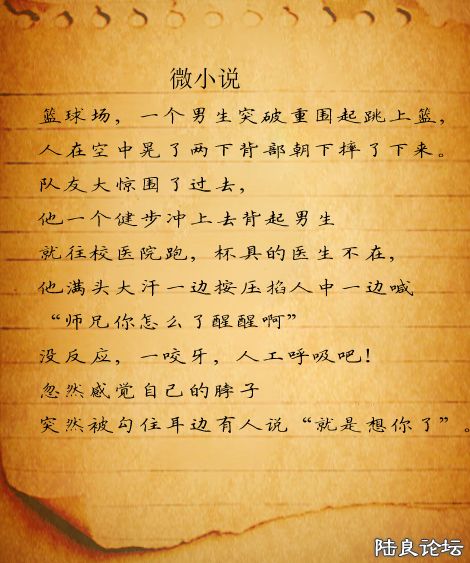 微小说
篮球场，一个男生突破重围起跳上篮，
人在空中晃了两下背部朝下摔了下来。
队友大惊围了过去，
他一个健步冲上去背起男生
就往校医院跑，杯具的医生不在，
他满头大汗一边按压掐人中一边喊
“师兄你怎么了醒醒啊”
没反应，一咬牙，人工呼吸吧！
忽然感觉自己的脖子
突然被勾住耳边有人说“就是想你了”。
陆良论坛